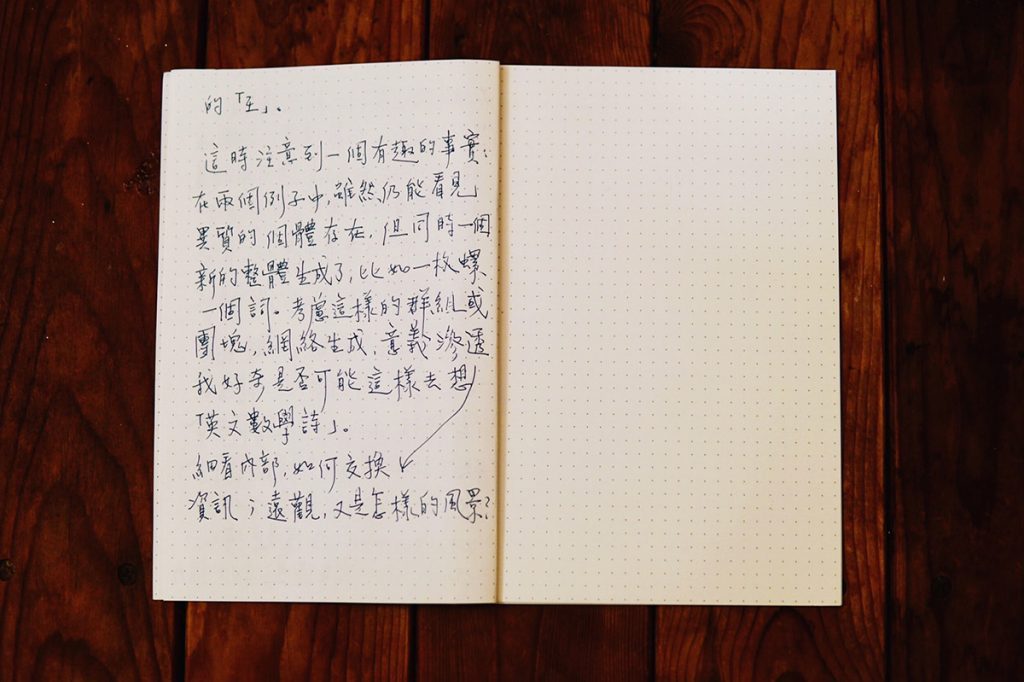 的「王」。
這時注意到一個有趣的事實:
在兩個例子中,雖然仍能看見
異質的個體存在,但同時一個
新的整體生成了,比如一枚螺
一個詞。考慮這樣的群組或
團塊,網絡生成,意義滲透
我好奇是否可能這樣去想
「英文數學詩」。
細看內部,如何交換
資訊;遠觀,又是怎樣的風景?